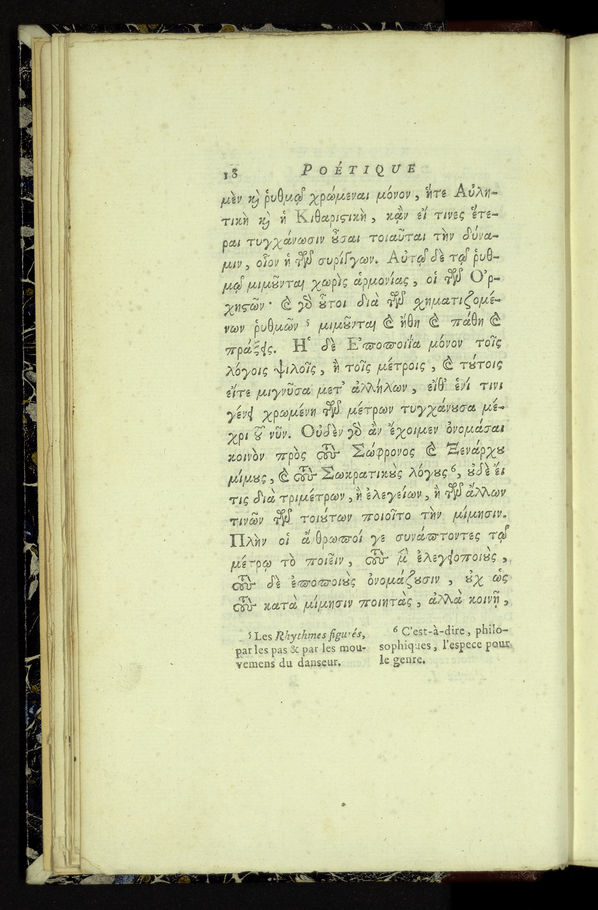 18 POÉTIQUE
μὲν καὶ ῥυθμῷ χρώμεναι μόνον, ἥτε Αὐλη-
τικὴ καὶ ἡ Κιθαριστικὴ, κᾂν εἴ τινες ἕτε-
ραι τυγχάνωσιν οὖσαι τοιαῦται τὴν δύνα-
μιν, οἷον ἡ τῶν συρίγγων. Αὐτῷ δὲ τῷ ῥυθ-
μῷ μιμοῦνται χωρὶς ἁρμονίας, οἱ τῶν Ὀρ-
χηστῶν· καὶ γὰρ οὗτοι διὰ τῶν σχηματιζομέ-
νων ῥυθμῶν ⁵ μιμοῦνται καὶ ἤθη καὶ πάθη καὶ
πράξεις. Ἡ δὲ Ἐποποιΐα μόνον τοῖς
λόγοις ψιλοῖς, ἢ τοῖς μέτροις, καὶ τούτοις
εἴτε μιγνῦσα μετ' ἀλλήλων, εἴθ' ἑνί τινι
γένει χρωμένη τῶν μέτρων τυγχάνουσα μέ-
χρι τοῦ νῦν. Οὐδὲν γὰρ ἂν ἔχοιμεν ὀνομάσαι
κοινὸν πρὸς τοὺς Σώφρονος καὶ Ξενάρχου
μίμους, καὶ τοὺς Σωκρατικοὺς λόγους ⁶, οὐδὲ εἴ
τις διὰ τριμέτρων, ἢ ἐλεγείων, ἢ τῶν ἄλλων
τινῶν τῶν τοιούτων ποιοῖτο τὴν μίμησιν.
Πλὴν οἱ ἄθρωποί γε συνάπτοντες τῷ
μέτρῳ τὸ ποιεῖν, τοὺς μὲν ἐλεγειοποιοὺς,
τοὺς δὲ ἐποποιοὺς ὀνομάζουσιν, οὐχ ὡς
τοὺς κατὰ μίμησιν ποιητὰς, ἀλλὰ κοινῇ,
⁵ Les Rhythmes figurés,
par les pas & par les mou-
vemens du danseur.
⁶ C'est-à-dire, philo-
sophiques, l'espece pour
le genre.